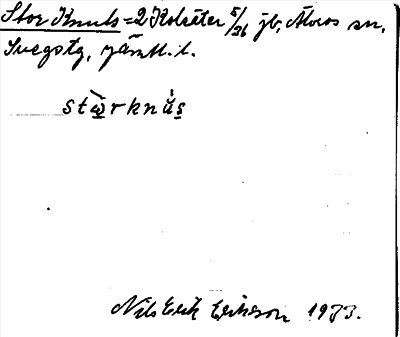 Stor Knuts = 2 Kolsäter 5/36 jb, Älvros sn,
Svegs tg, Jämtl. l.
stẁ̲rknú̇s̲
Nils Erik Eriksson 1973.